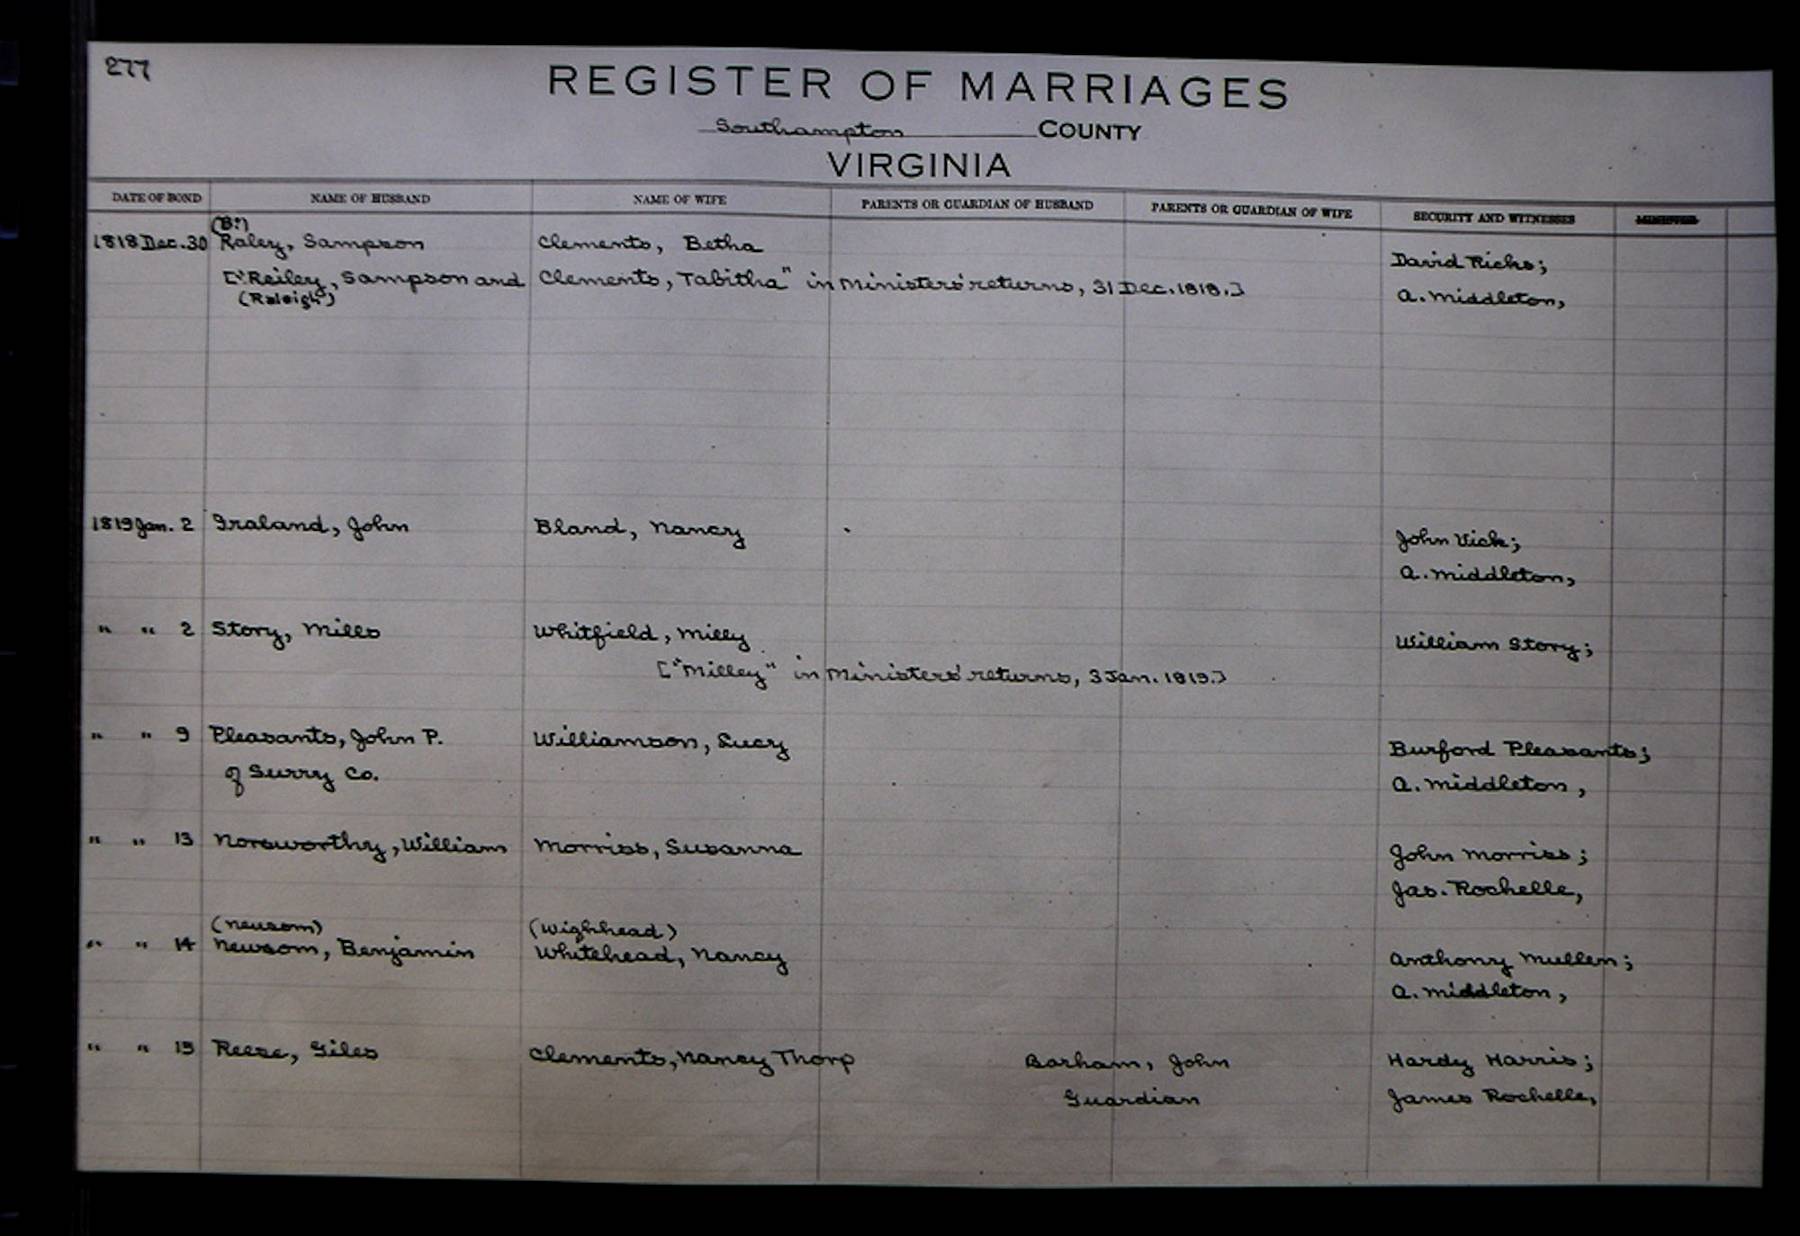 277
REGISTER OF MARRIAGES
Southampton COUNTY
VIRGINIA
DATE OF BOND NAME OF HUSBAND NAME OF WIFE PARENTS OR GUARDIAN OF HUSBAND PARENTS OR GUARDIAN OF WIFE SECURITY AND WITNESSES MINISTER
(B?)
1818 Dec. 30 Raley, Sampson Clements, Betha David Ricks;
["Reiley, Sampson and Clements, Tabitha" in Ministers' returns, 31 Dec. 1818.] A. Middleton,
(Raleigh)
1819 Jan. 2 Iraland, John Bland, Nancy John Vick;
A. Middleton,
" " 2 Story, Mills Whitfield, Milly William Story;
["Milley" in Ministers' returns, 3 Jan. 1819.]
" " 9 Pleasants, John P. Williamson, Lucy Burford Pleasants;
of Surry Co. A. Middleton,
" " 13 Norsworthy, William Morriss, Susanna John Morriss;
Jas. Rochelle,
(Neusom) (Wighhead)
" " 14 Newsom, Benjamin Whitehead, Nancy Anthony Mullen;
A. Middleton,
" " 15 Reese, Giles Clements, Nancy Thorp Barham, John Hardy Harris;
Guardian James Rochelle,